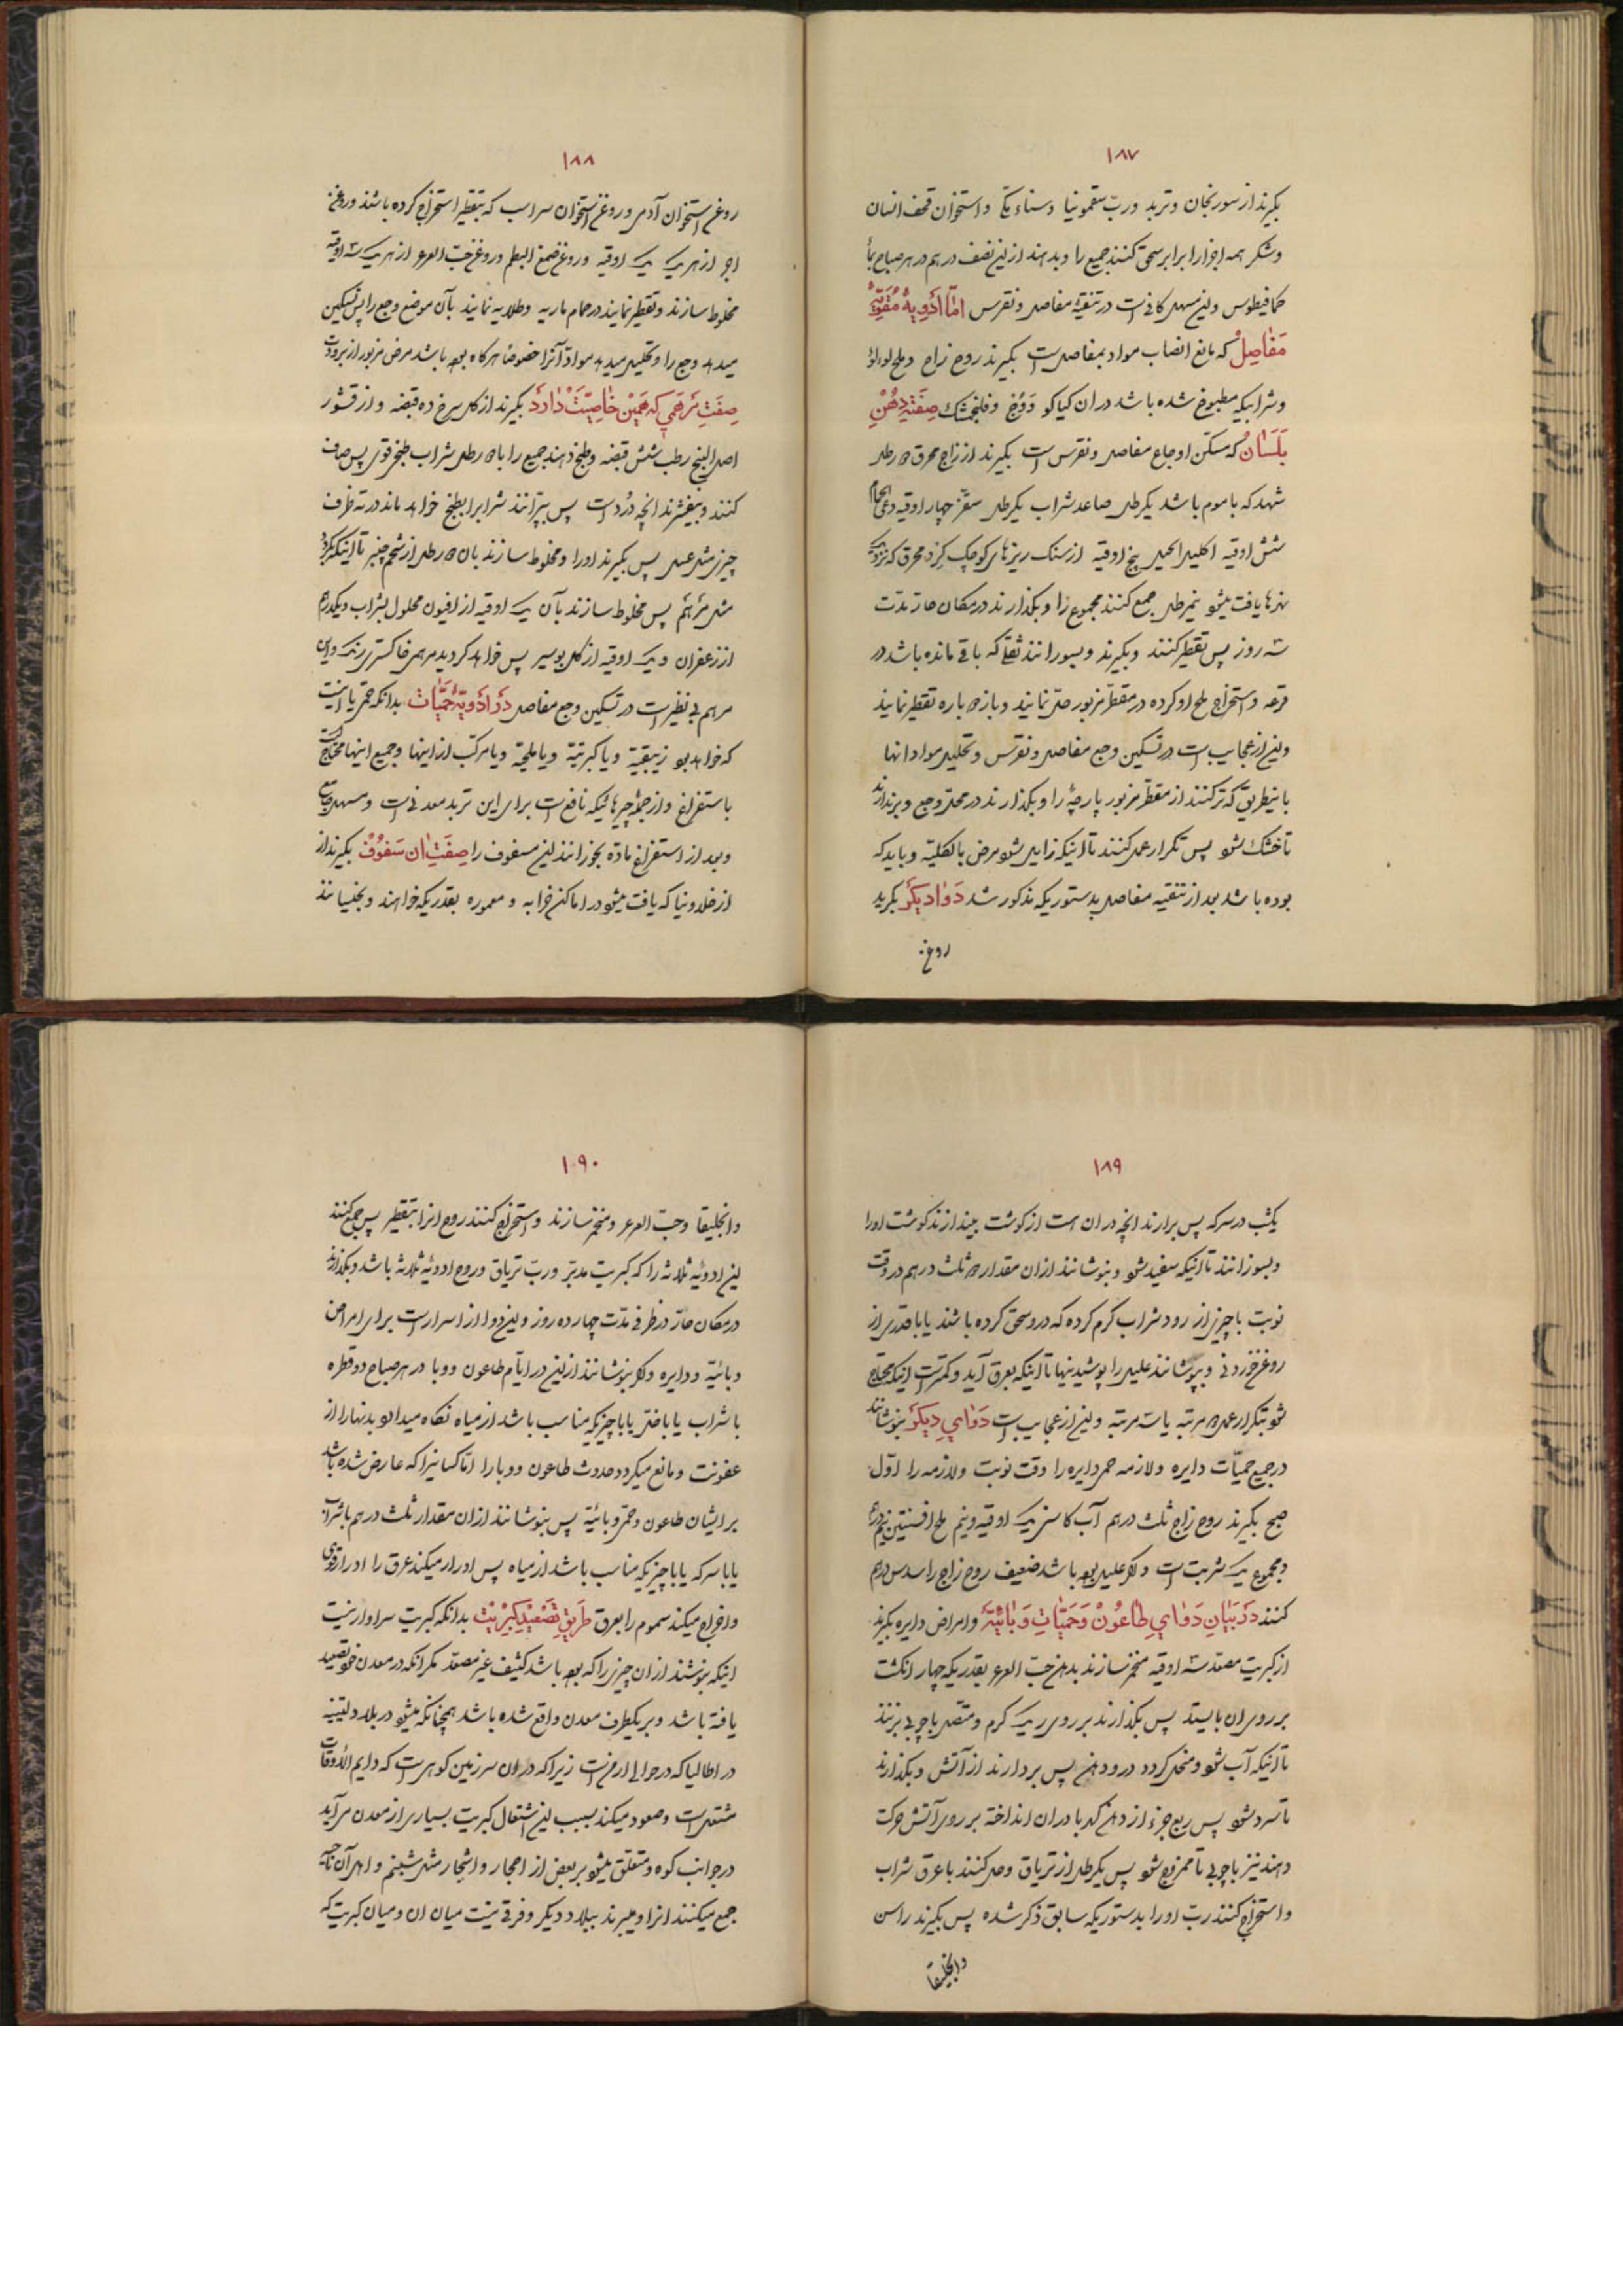 ۱۸۷
بگیرند از سورنجان و تربد و ربّ سقمونیا و سناء مکّی و استخوان قحف انسان
و شکر همه اجزا را برابر سحق کنند جمیع را و بدهند ازین نصف درهم در هر صباح بماء
کمافیطوس و این مسهل کافی است در تنقیهٔ مفاصل و نقرس امّا ادویهٔ مقوّیهٔ
مفاصل که مانع انصباب مواد بمفاصل است بگیرند روح زاج و ملح لؤلؤ
و شرابیکه مطبوخ شده باشد در ان کماکو و وج و فلنجمشک صفت دهن
بلسان که مسکّن اوجاع مفاصل و نقرس است بگیرند از زاج محرق ۲ رطل
شهد که باموم باشد یکرطل صاعد شراب یکرطل سقز چهار اوقیه
شش اوقیه اکلیل الجبل پنج اوقیه از سنک ریزهای کوچک کرد محرق که نزدیک
نهرها یافت میشود نیمرطل جمع کنند مجموع را و بگذارند در مکان حار مدّت
سه روز پس تقطیر کنند و بگیرند و بسوزانند ثقلی که باقی مانده باشد در
قرعه و استخراج ملح او کرده در مقطّر مزبور حلّ نمایند و باز ۲ باره تقطیر نمایند
و این از عجایب است در تسکین وجع مفاصل و نقرس و تحلیل مواد انها
باینطریق که تر کنند از مقطّر مزبور پارچهٔ را و بگذارند در محلّ وجع و برندارند
تا خشک شود پس تکرار عمل کنند تا اینکه زایل شود مرض بالکلیّه و باید که
بوده باشد بعد از تنقیه مفاصل بدستوریکه مذکور شد دواء دیگر بگیرید
روغن
۱۸۸
روغن استخوان آدمی و روغن استخوان سر اسب که بتقطیر استخراج کرده باشند و روغن
اجر از هر یک یک اوقیه و روغن صمغ البطم و روغن حبّ العرعر از هر یک سه اوقیه
مخلوط سازند و تقطیر نمایند در حمام ماریه و طلایه نمایند بآن موضع وجع را پس تسکین
میدهد وجع را و تحلیل میدهد مواد آنرا خصوصا هرکاه بوده باشد مرض مزبور از برودت
صفت مرهمی که همین خاصیّت دارد بگیرند از کل سرخ ده قبضه و از قشور
اصل البنج رطب شش قبضه و طبخ دهند جمیع را با ۲ رطل شراب طبخ قوی پس صاف
کنند و بیفشرند انچه دُرد است پس بپزانند شرابرا بطبخ خواهد ماند در ته ظرف
چیزی مثل عسل پس بگیرند اورا و مخلوط سازند بان ۲ رطل از شحم خنزیر تا اینکه بگردد
مثل مرهم پس مخلوط سازند بآن یک اوقیه از افیون محلول بشراب و یکدرهم
از زعفران و یک اوقیه از کل بوسیر پس خواهد گردید مرهمی خاکستری رنگ و این
مرهم بی نظیر است در تسکین وجع مفاصل در ادویهٔ حمّیات بدانکه حمّی یا اینست
که خواهد بود زیبقیّة و یا کبریتیّة و یا ملحیّة و یا مرکب از اینها و جمیع اینها محتاج است
باستفراغ و از جمله چیرهائیکه نافع است برای این تربد معدنی است و مسهل جامع
و بعد از استفراغ مادّه بخورانند این سفوف را صفت ان سفوف بگیرند از
از حلادنیا که یافت میشود در اماکن خرابه و معموره بقدریکه خواهند و بخیسانند
۱۸۹
یکشب در سرکه پس برارند انچه در ان است از کوشت بیندازند کوشت اورا
و بسوزانند تا اینکه سفید شود و بنوشانند ازان مقدار ۲ ثلث درهم در وقت
نوبت با چیزی از رود شراب گرم کرده که در و سحق کرده باشند یا با قدری از
روغن خوردنی و بپوشانند علیل را پوشیدنیها تا اینکه بعرق آید و کمتر است اینکه محتاج
شود بتکرار عمل ۲ مرتبه یا سه مرتبه و این از عجایب است دوای دیگر بنوشانند
در جمیع حمیّات دایره و لازمه حمی دایره را وقت نوبت و لازمه را اوّل
صبح بگیرند روح زاج ثلث درهم آب کاسنی یک اوقیه و نیم ملح افسنتین نیم درهم
و مجموع یک شربت است و اگر علیل بوده باشد ضعیف روح زاج را سدس درهم
کنند در بیان دوای طاعون و حمیّات وبائیّة و امراض دایره بگیرند
از کبریت مصعّد سه اوقیه مخمّر سازند بدهن حبّ العرعر بقدریکه چهار انگشت
بر روی ان بایستد پس بگذارند بر روی ریک گرم و متّصل با چوبی بزنند
تا اینکه آب شود و منحل گردد در و دهن پس بردارند از آتش و بگذارند
تا سرد شود پس ربع جزء از دهن کهربا در ان انداخته بر روی آتش حرکت
دهند نیز با چوبی تا ممزوج شود پس یکرطل از تریاق و حل کنند با عرق شراب
و استخراج کنند ربّ اورا بدستوریکه سابق ذکر شده پس بگیرند راسن
وانجلیقا
۱۹۰
وانجلیقا و حبّ العرعر و مخمّر سازند و استخراج کنند روح انرا بتقطیر پس جمع کنند
این ادویهٔ ثلاثه را که کبریت مدبّر و ربّ تریاق و روح ادویّه ثلاثه باشد و بگذارند
در مکان حارّ در ظرفی مدّت چهارده روز و این دوا از اسرار است برای امراض
وبائیّة و دایره و اگر بنوشانند ازین در ایّام طاعون و وبا در هر صباح دو قطره
با شراب یا با خلّ یا با چیزیکه مناسب باشد از میاه نگاه میدارد بدنها را از
عفونت و مانع میگردد حدوث طاعون و وبا را امّا کسانیرا که عارض شده باشد
بر ایشان طاعون و حمّی وبائیّة پس بنوشانند ازان مقدار ثلث درهم باشراب
یا با سرکه یا با چیزیکه مناسب باشد از میاه پس ادرار میکند عرق را ادرار قوی
و اخراج میکند سموم را بعرق طریق تصعید کبریت بدانکه کبریت سزاوار نیست
اینکه بنوشند ازان چیزی را که بوده باشد کثیف غیر مصعّد مگر انکه در معدن خود تصعید
یافته باشد و بر یکطرف معدن واقع شده باشد همچنانکه میشود در بلاد لتینیه
در اطالیا که در حوالی ارض است زیرا که در ان سرزمین کوهی است که دایم الاوقات
مشتعل است و صعود میکند بسبب این اشتعال کبریت بسیاری از معدن می آید
در جوانب کوه و متعلّق میشود بر بعض از احجار و اشجار مثل شبنم و اهل آن ناحیه
جمع میکنند انرا و میبرند ببلاد دیگر و فرقی نیست میان ان و میان کبریت که